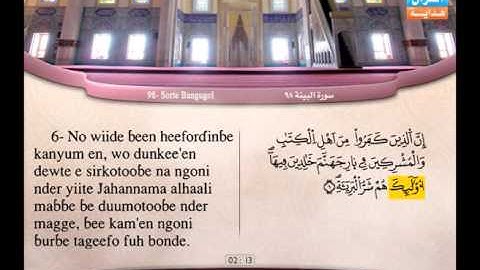 القرآن
هداية
98- Sorte Bangugol
سورة البينة ٩٨
6- No wiide ɓeen heeforɗinɓe
kanyum en, wo dunkee'en
dewte e sirkotooɓe na ngoni
nder yiite Jahannama alhaali
maɓɓe ɓe duumotooɓe nder
magge, ɓee kam'en ngoni
burɓe tageefo fuh bonde.
إِنَّ الَّذِينَ كَفَرُوا مِنْ أَهْلِ الْكِتَابِ
وَالْمُشْرِكِينَ فِي نَارِ جَهَنَّمَ خَالِدِينَ فِيهَا
أُولَٰئِكَ هُمْ شَرُّ الْبَرِيَّةِ ٦
02 : 13